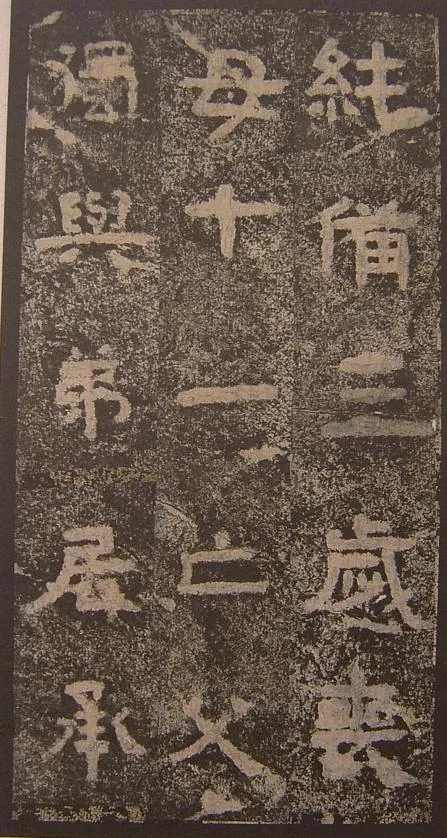 純備三歲喪
母十一亡父
獨與弟居承